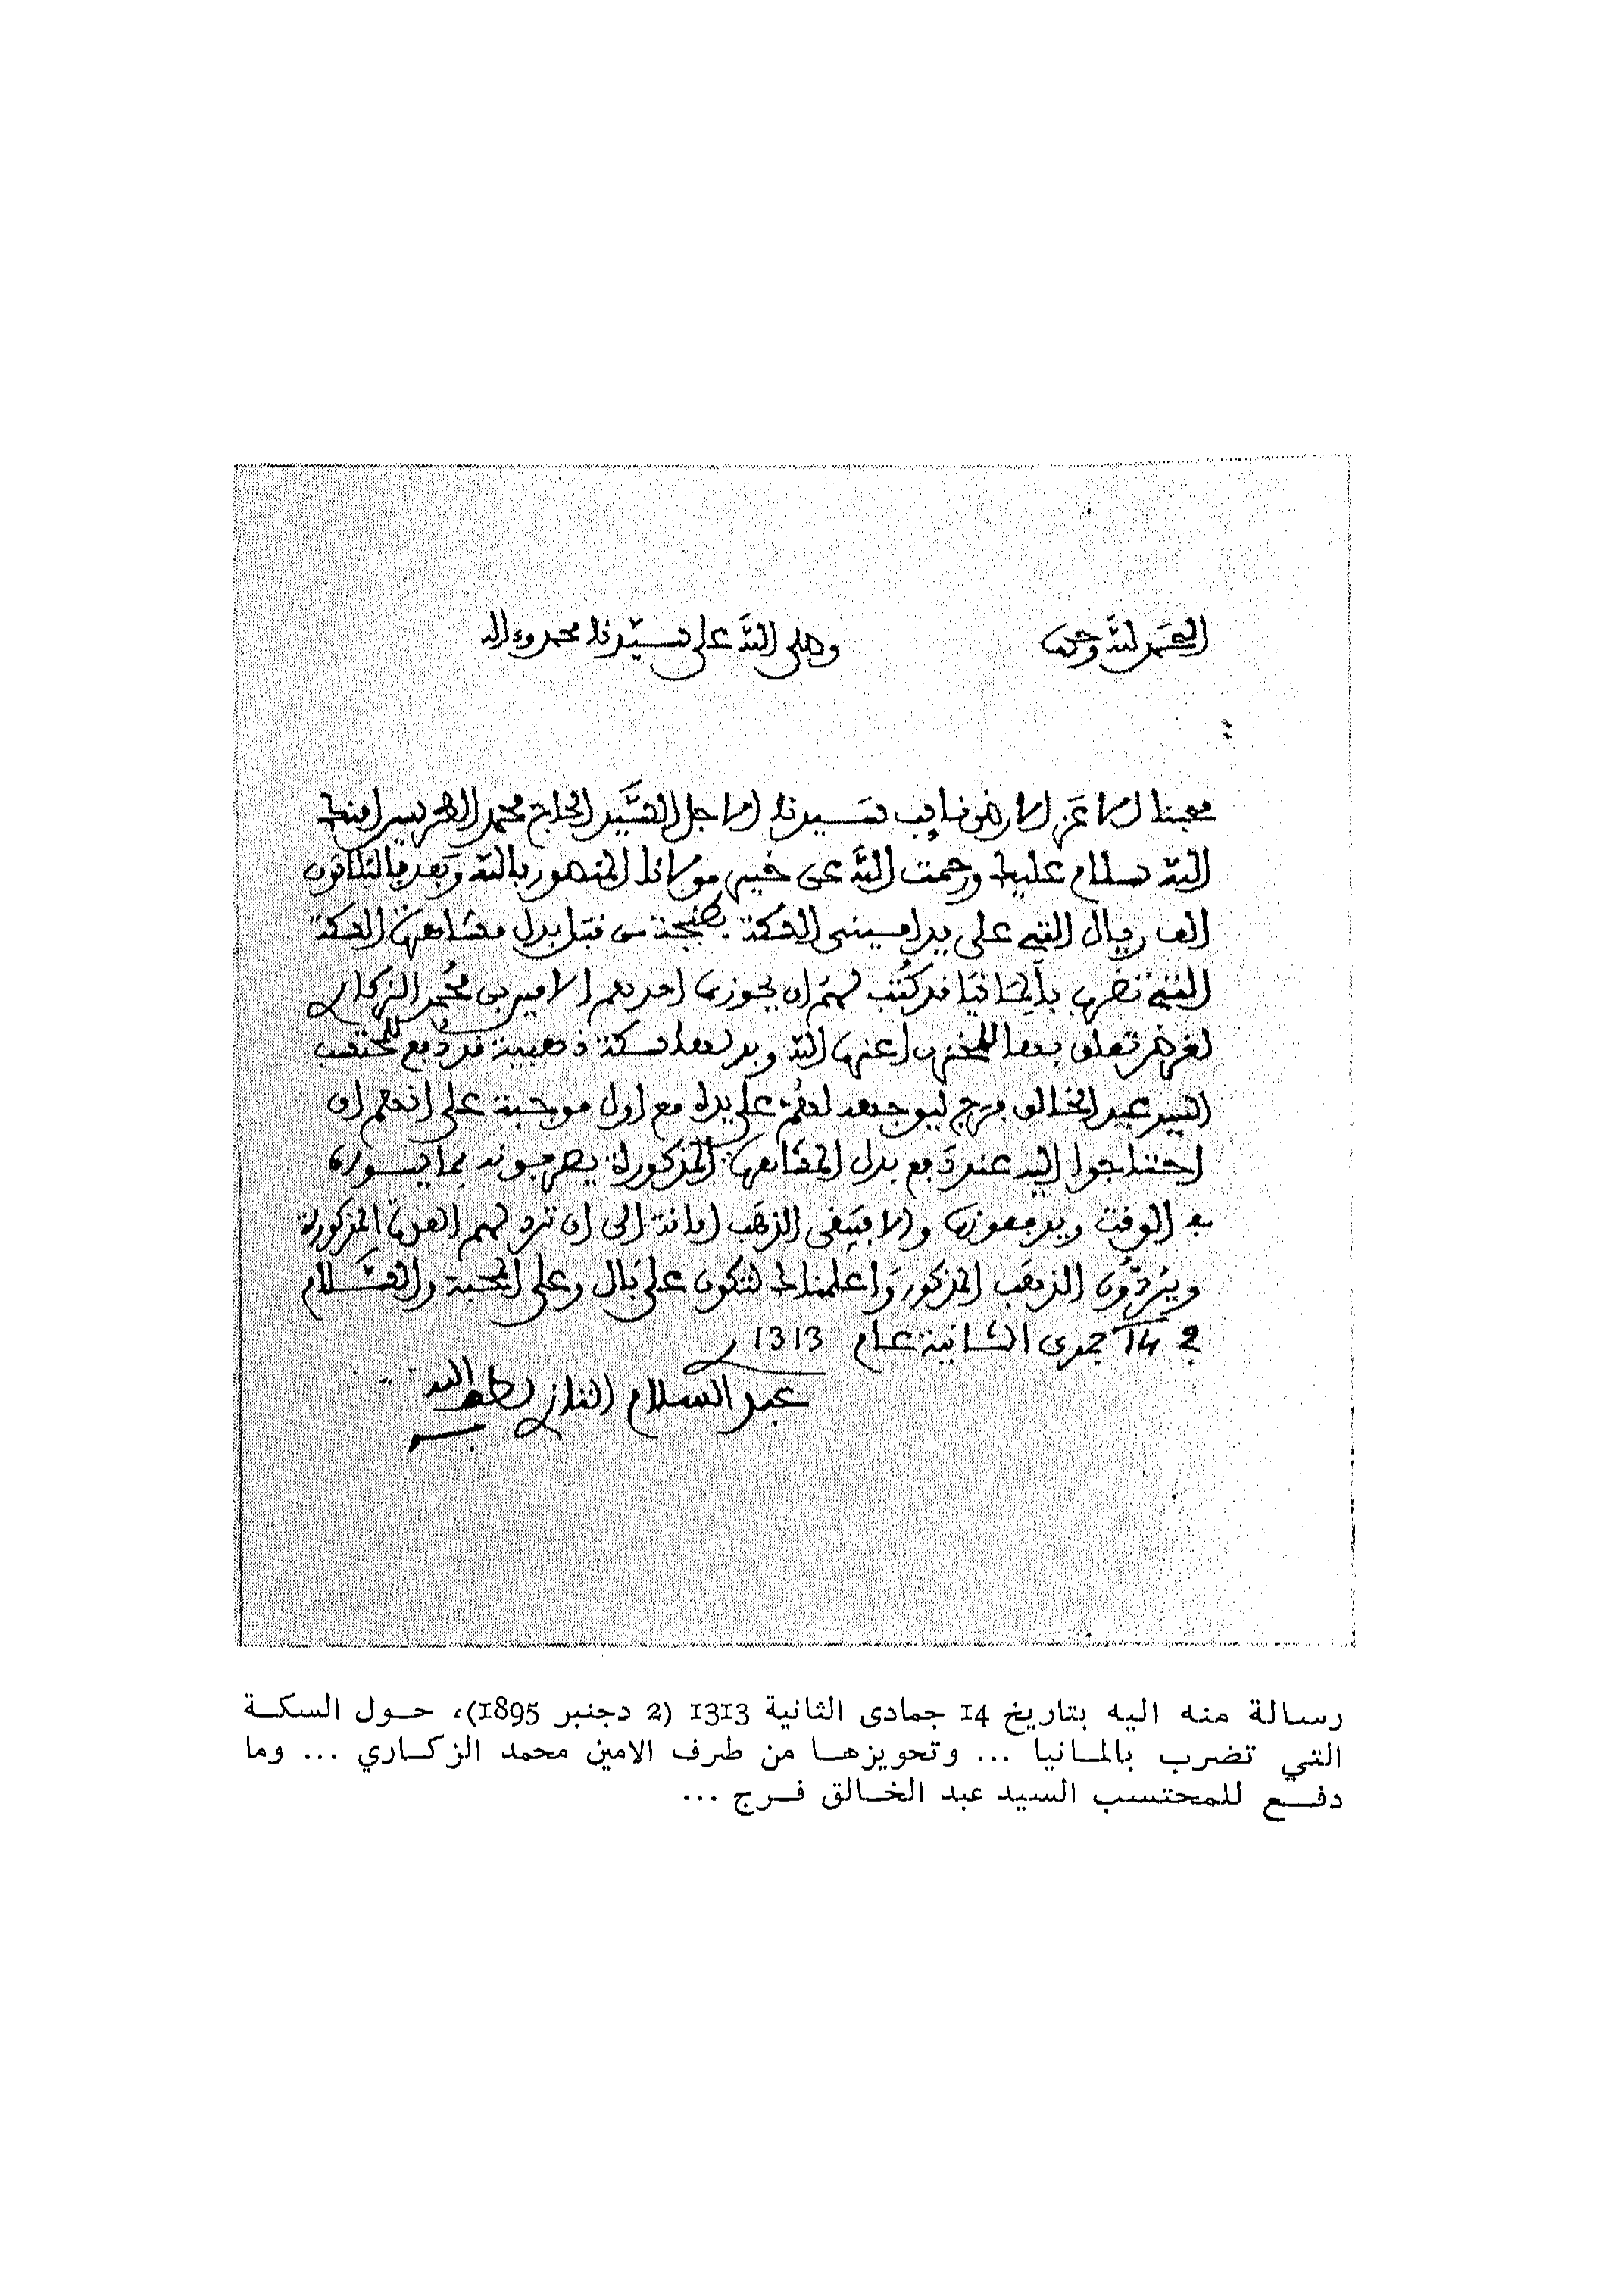 الحمد لله وحده
وصلى الله على سيدنا محمد وءاله
محبنا الاعز الارضى نايب سيدنا الاجل السيد الحاج محمد الطريس امنك
الله سلام عليك ورحمت الله عن خير مولانا المنصور بالله وبعد فالثلاثون
الف ريال التي على يد امينى السكة بطنجة من قبل بدل مشاهرة السكة
التي تضرب بألمانيا قد كتب لهم ان يحوزها احدهم الامين محمد الزكاري
لغرض تعلق بها للمخزن اعزه الله وبدلها سكة ذهبية قد دفع للمحتسب
السيد عبد الخالق فرج ليوجهه لهم على يده مع اول موجبة على انهم ان
احتاجوا اليه عند دفع بدل المشاهرة المذكورة يصرفونه بما يسوى
في الوقت ويدفعونه والا فيبقى الذهب امانة الى ان ترد لهم المذكورة
ويردون الذهب المذكور واعلمناك لتكون على بال وعلى المحبة والسلام
في 14 جمدى الثانية عام 1313
عبد السلام التازي لطف الله به
رسالة منه اليه بتاريخ 14 جمادى الثانية 1313 (2 دجنبر 1895)، حول السكة
التي تضرب بالمانيا ... وتحويزها من طرف الامين محمد الزكاري ... وما
دفع للمحتسب السيد عبد الخالق فرج ...